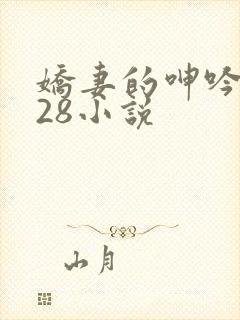 嬌妻的呻吟
28小説
山月